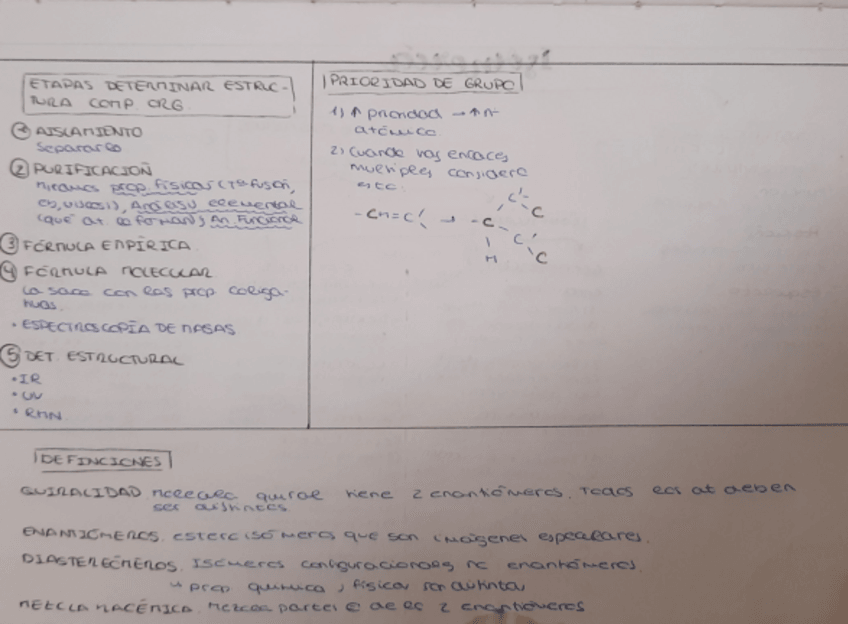 ETAPAS DETERMINAR ESTRUC-
TURA COMP. ORG.
① AISLAMIENTO
Separarlo
② PURIFICACIÓN
miramos prop. físicas (Tª fusión,
), Análisis elemental
(qué at. lo forman), An. Funcional
③ FÓRMULA EMPÍRICA
④ FÓRMULA MOLECULAR
La saco con las prop. coliga-
tivas.
· ESPECTROSCOPÍA DE MASAS
⑤ DET. ESTRUCTURAL
· IR
· UV
· RMN
PRIORIDAD DE GRUPO
1) ↑ prioridad → ↑ nº
atómico
2) Cuando hay enlaces
múltiples considero
esto:
-CH=C → -C-
C
C
C
H
C
DEFINCIONES
QUIRALIDAD. molécula quiral tiene 2 enantiómeros. Todos los at deben
ser distintos.
ENANTIÓMEROS. estereoisómeros que son imágenes especulares.
DIASTEREÓMEROS. Isómeros configuracionales no enantiómeros.
↳ prop química y física son distinta
MEZCLA RACÉMICA. Mezcla partes = de los 2 enantiómeros